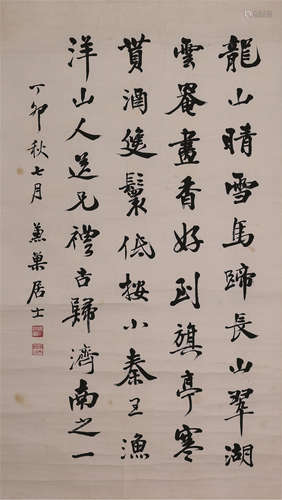 龍山晴雪馬蹄長山翠湖
雲罨畫香好到旗亭寒
貰酒鬟低按小秦王漁
洋山人送兄禮吉歸濟南之一
丁卯秋七月 兼巢居士